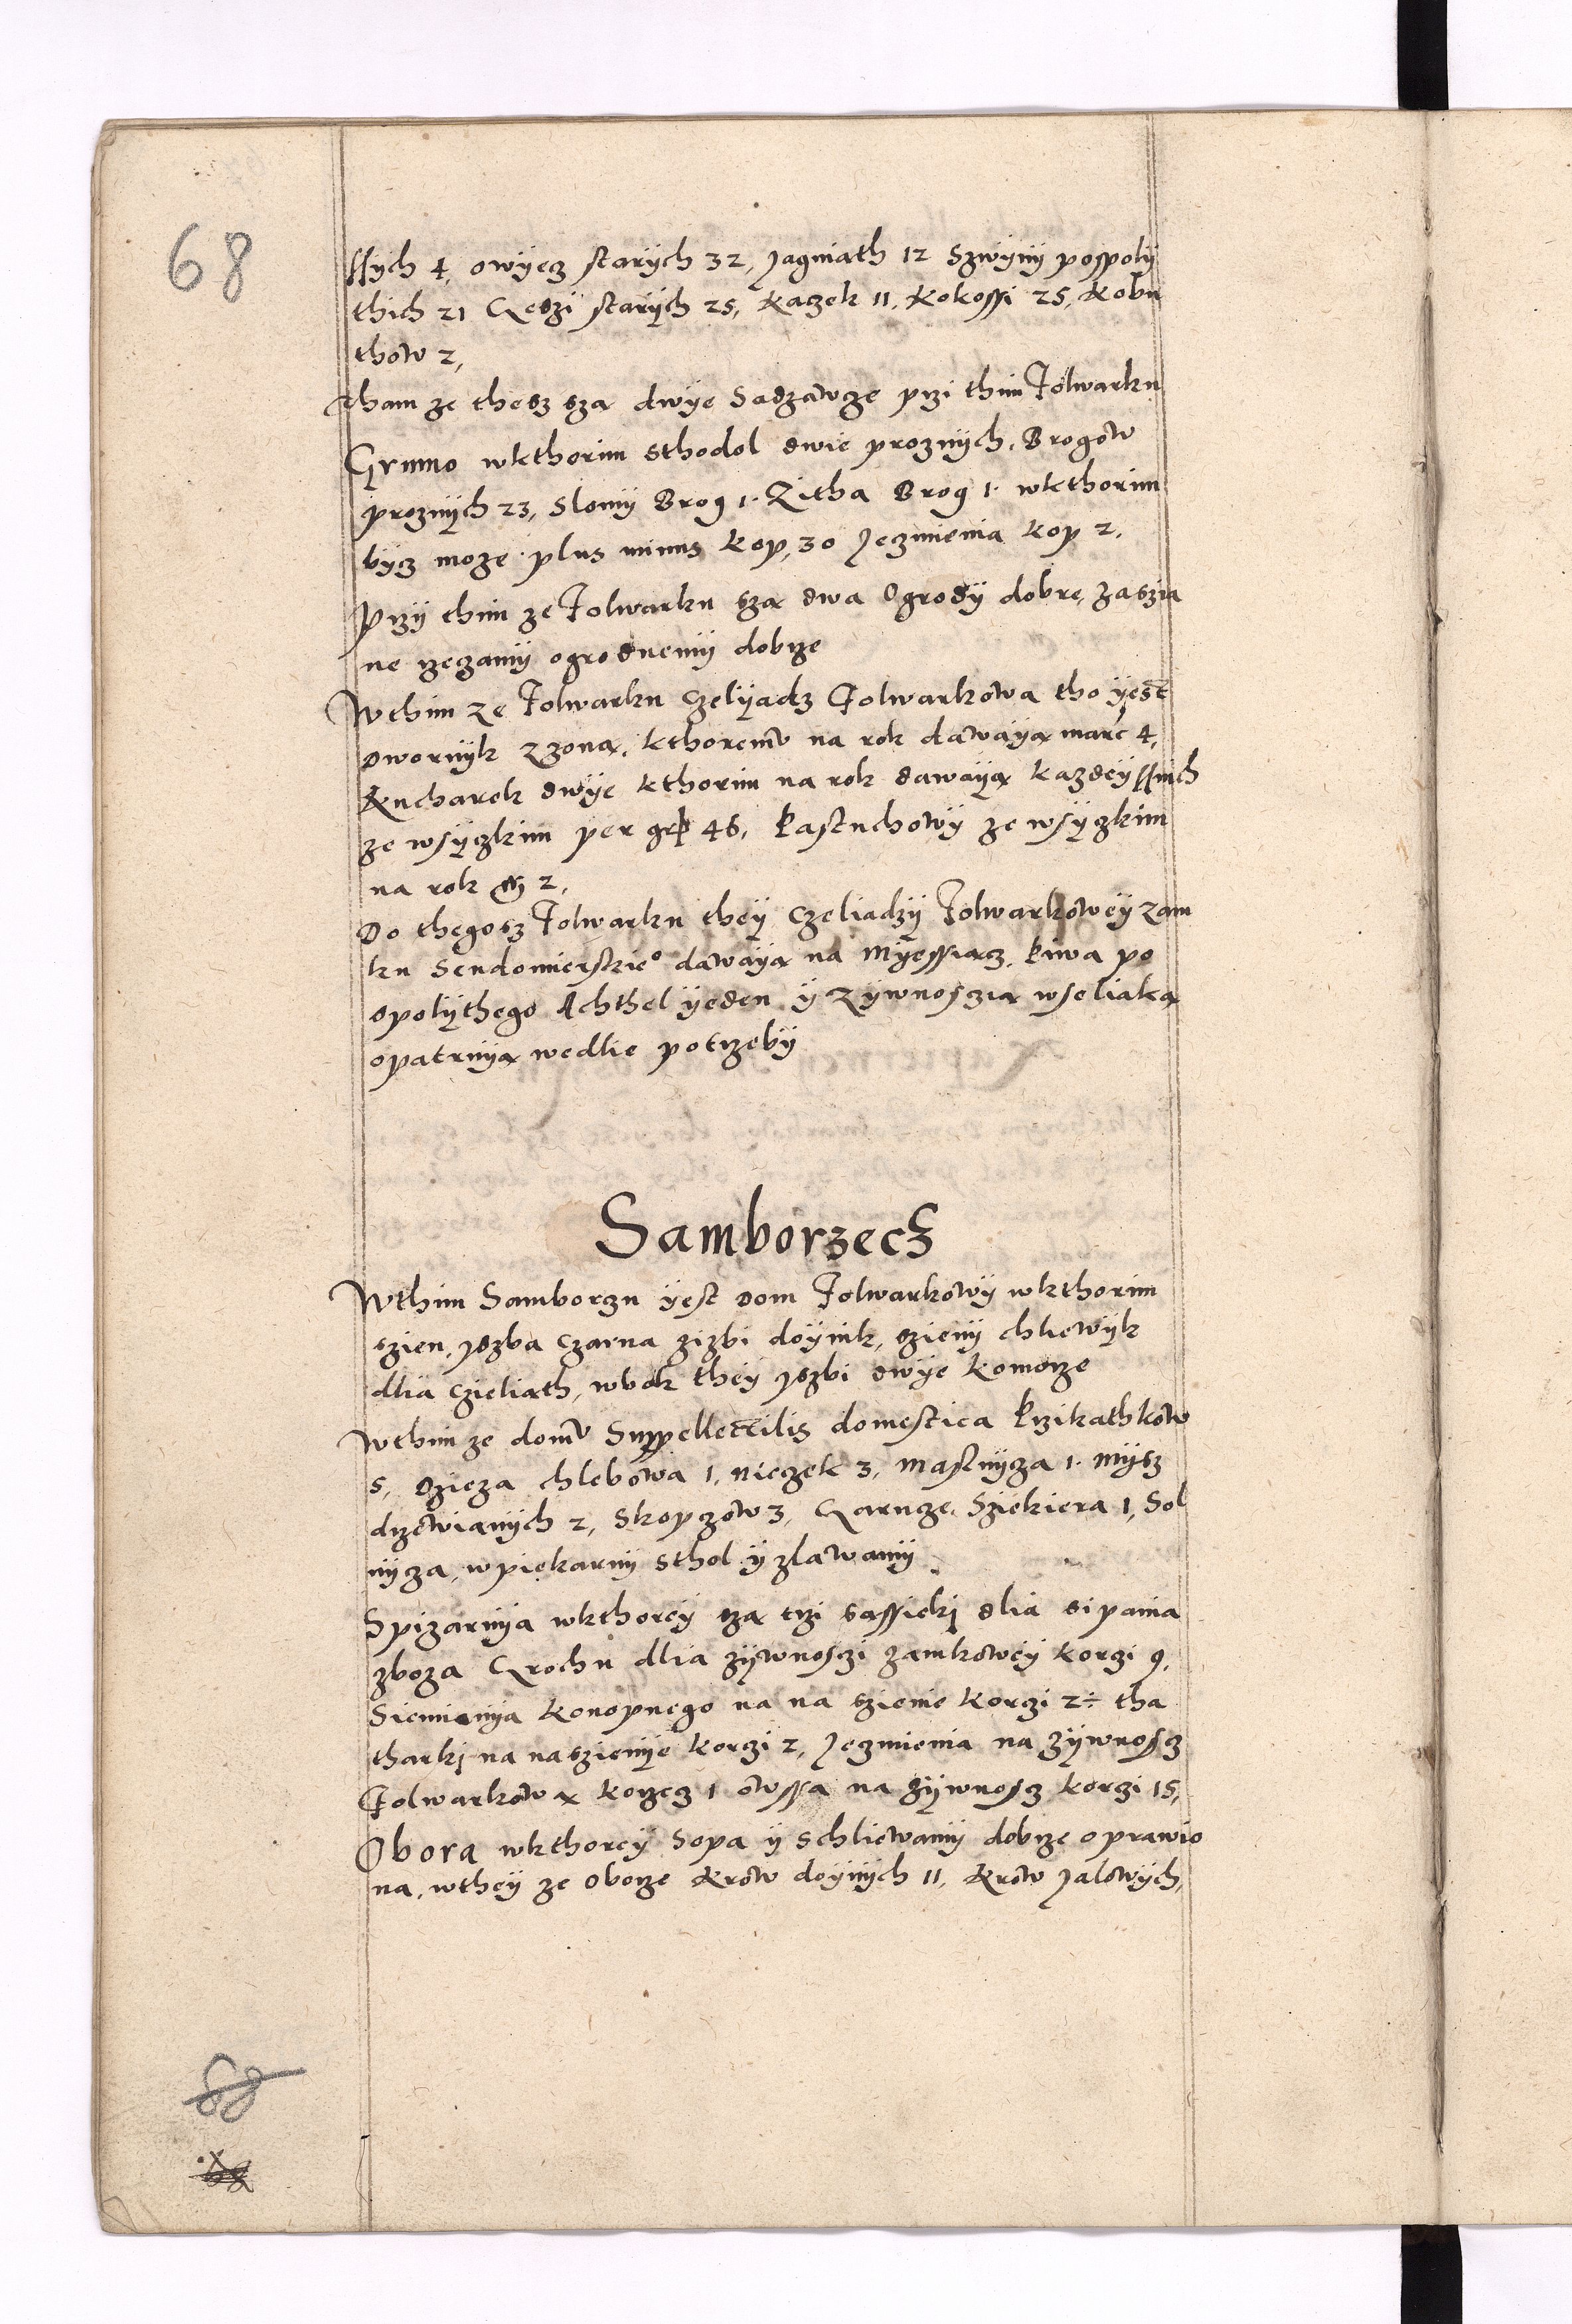 68
ſſych 4, owyecz starych 32, Jagniath 12 Szwyny pospoly
thich 21 Geszi starych 25, Kaczek 11, Kokoſſi 25, Kobu
thow 2,
Tham ze thesz sza dwye Sadzawcze przi thim Folwarku
Gumno wkthorim Sthodol dwie proznych, Brogow
proznych 23, Slomy Brog 1. Zitha Brog 1. wkthorim
bycz moze plus minus kop, 30 Jeczmienia kop 2.
Przy thim ze Folwarku sza dwa Ogrody dobre, zaszia
ne rzeczamy ogrodnemy dobrze
Wthim ze Folwarku Czelyadz Folwarkowa tho yest
Dwornyk z zona, kthoremu na rok dawaya marc 4,
Kucharek dwye kthorim na rok dawaya kazdey ſſnich
ze wsyczkim per gr 46, Pastuchowy ze wsyczkim
na rok 2,
Do thegosz Folwarku they Czeliadzy Folwarkowey zam
ku Sendomierskieo dawaya na Myeſſiacz, Piwa po
spolythego Achthel yeden y zywnoscia wseliaka
opatruya wedlie potrzeby
Samborzecz
Wthim Samborzu yest Dom Folwarkowy wkthorim
szien, yszba Czarna zizbi doynik, szieny chliewyk
dlia Czieliath, wbok they yszbi dwye komorze
Wthim ze domu Suppellectilis domestica Przikathkow
5, Dzieza chlebowa 1, Nieczek 3, Mastnycza 1. Mysz
drzewianych 2, Skopczow 3, Garncze, Sziekiera 1, Sol
nycza, w piekarny Sthol y zlawamy
Spizarnya wkthorey sza trzi saſſieki dlia sipania
zboza Grochu dlia zywnosczi zamkowey korczi 9,
Siemienya Konopnego na na szienie korczi 2÷ tha
tharki na naszienye korczi 2, Jeczmienia na zywnoscz
Folwarkowa korzecz 1 owſſa na zywnoscz korczi 15,
Obora wkthorey Sopa y Schliewamy dobrze oprawio
na, wthey ze Oborze Krow doynych 11, Krow Jalowych,
68